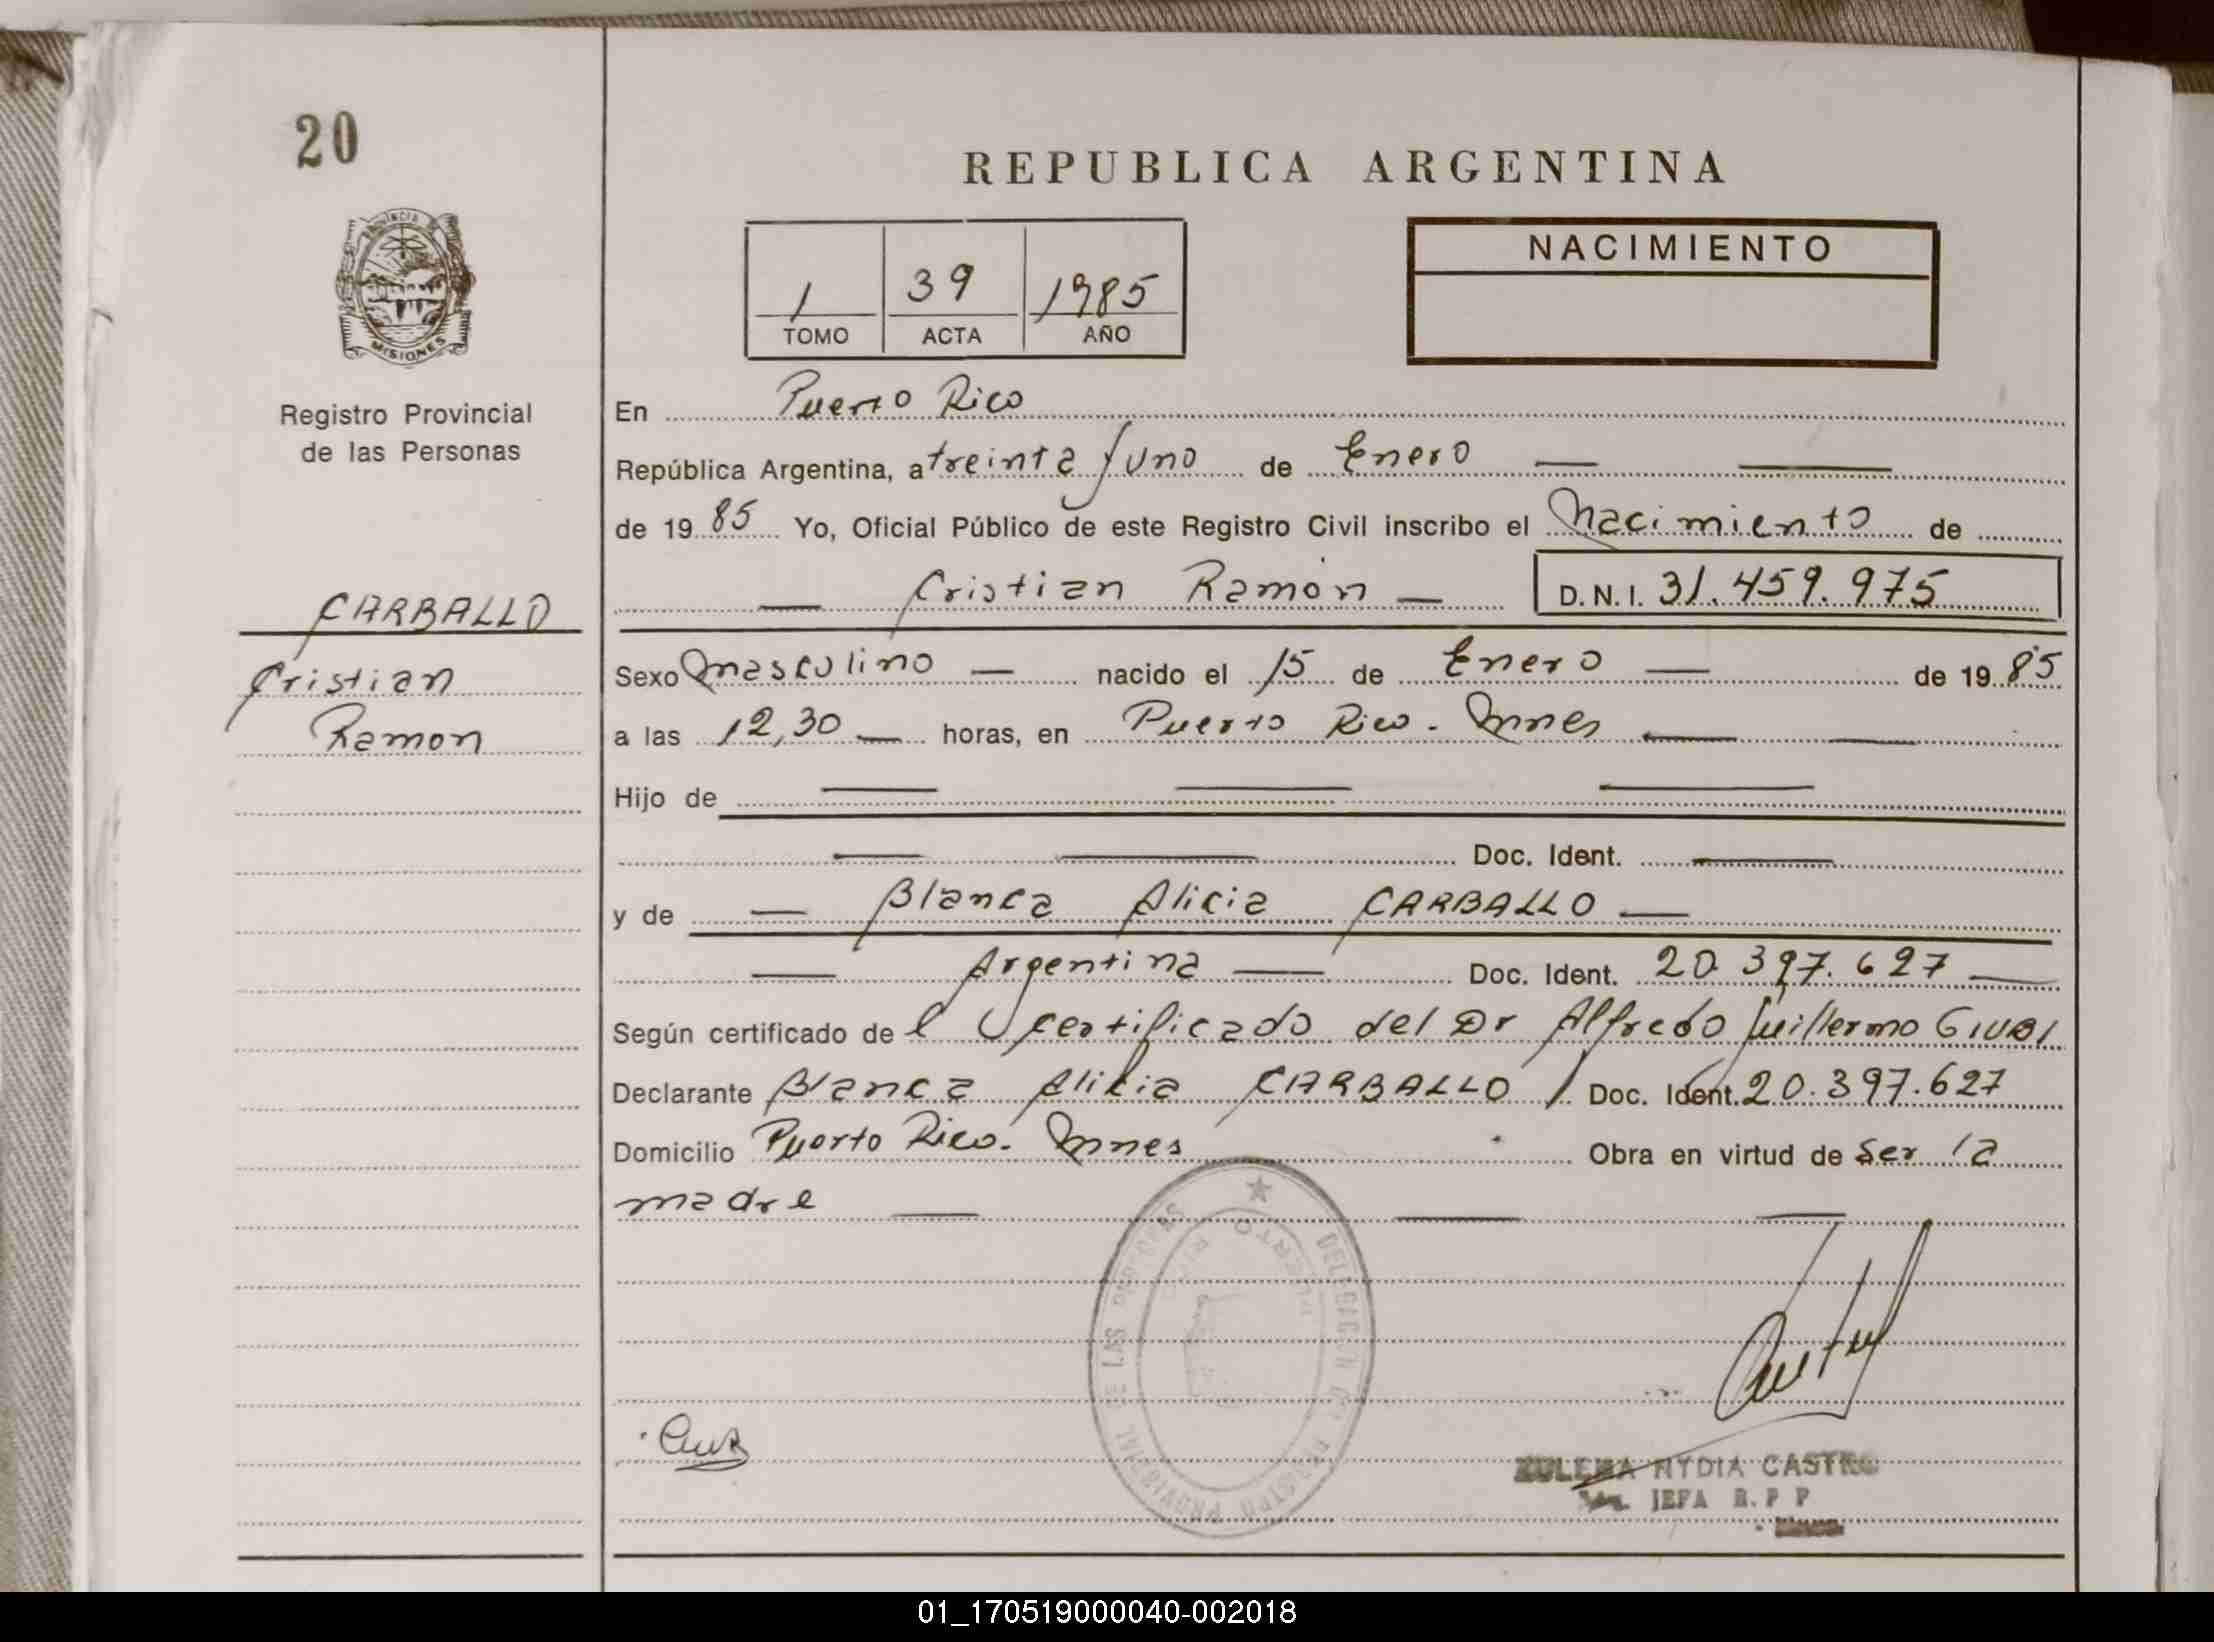 20
REPUBLICA ARGENTINA
PROVINCIA DE
MISIONES
Registro Provincial
de las Personas
1 39 1985
TOMO ACTA AÑO
NACIMIENTO
En Puerto Rico
República Argentina, a treinta y uno de Enero
de 19 85 Yo, Oficial Público de este Registro Civil inscribo el Nacimiento de
Cristian Ramón D.N.I. 31.459.975
CARBALLO
Cristian
Ramon
Sexo masculino nacido el 15 de Enero de 19 85
a las 12,30 horas, en Puerto Rico - Mnes
Hijo de
Doc. Ident.
y de Blanca Alicia CARBALLO
Argentina Doc. Ident. 20.397.627
Según certificado de l certificado del Dr Alfredo Guillermo
Declarante Blanca Alicia CARBALLO Doc. Ident. 20.397.627
Domicilio Puerto Rico - Mnes Obra en virtud de ser la
madre
DELEGACION DEL REGISTRO PROVINCIAL DE LAS PERSONAS
PUERTO RICO
ZULEMA NYDIA CASTRO
JEFA R.P.P
01_170519000040-002018